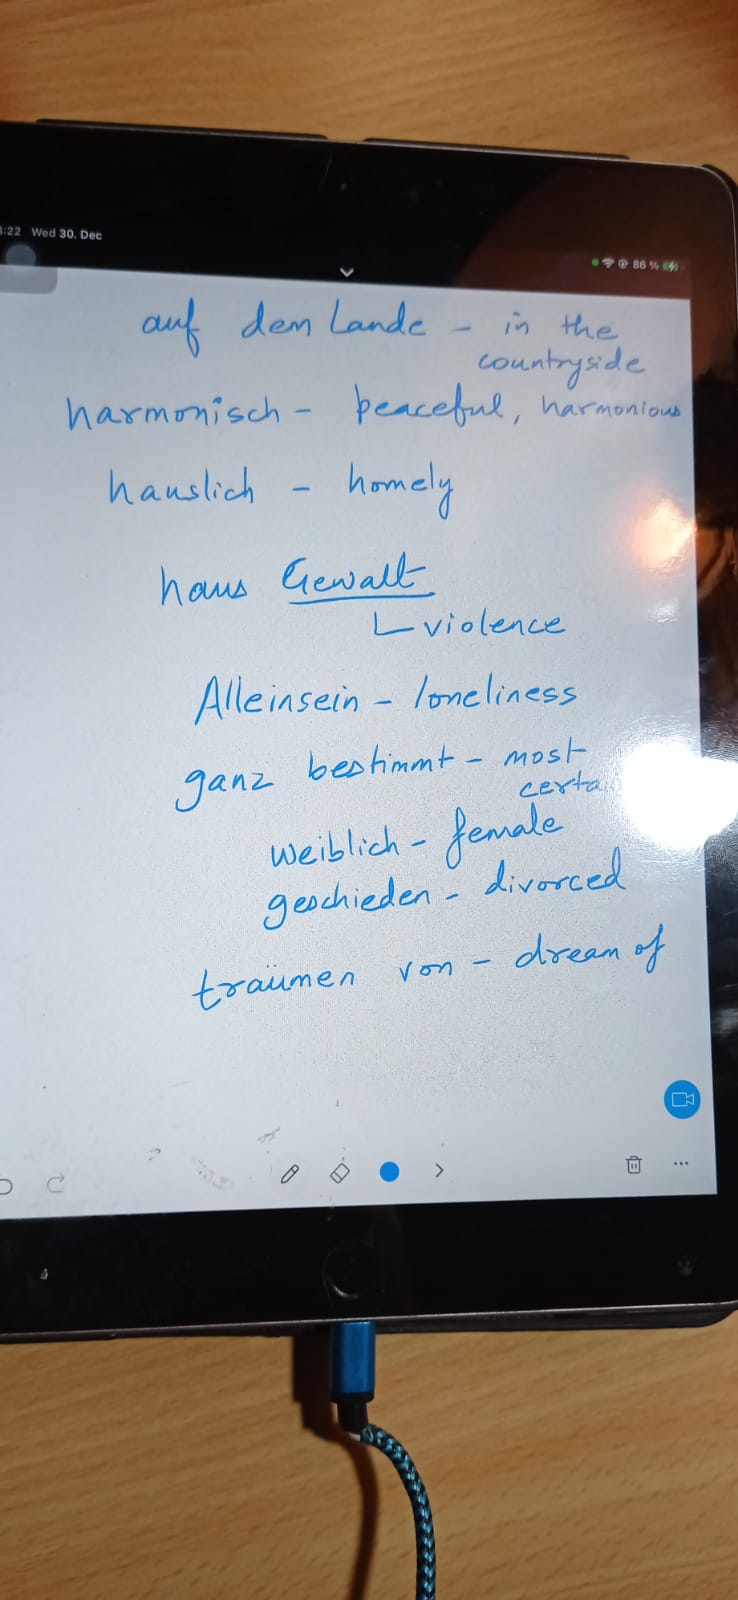 :22 Wed 30. Dec
86 %
auf dem Lande - in the
countryside
harmonisch - peaceful, harmonious
hauslich - homely
haus Gewalt
violence
Alleinsein - loneliness
ganz bestimmt - most
weiblich - female
geschieden - divorced
traümen von - dream of